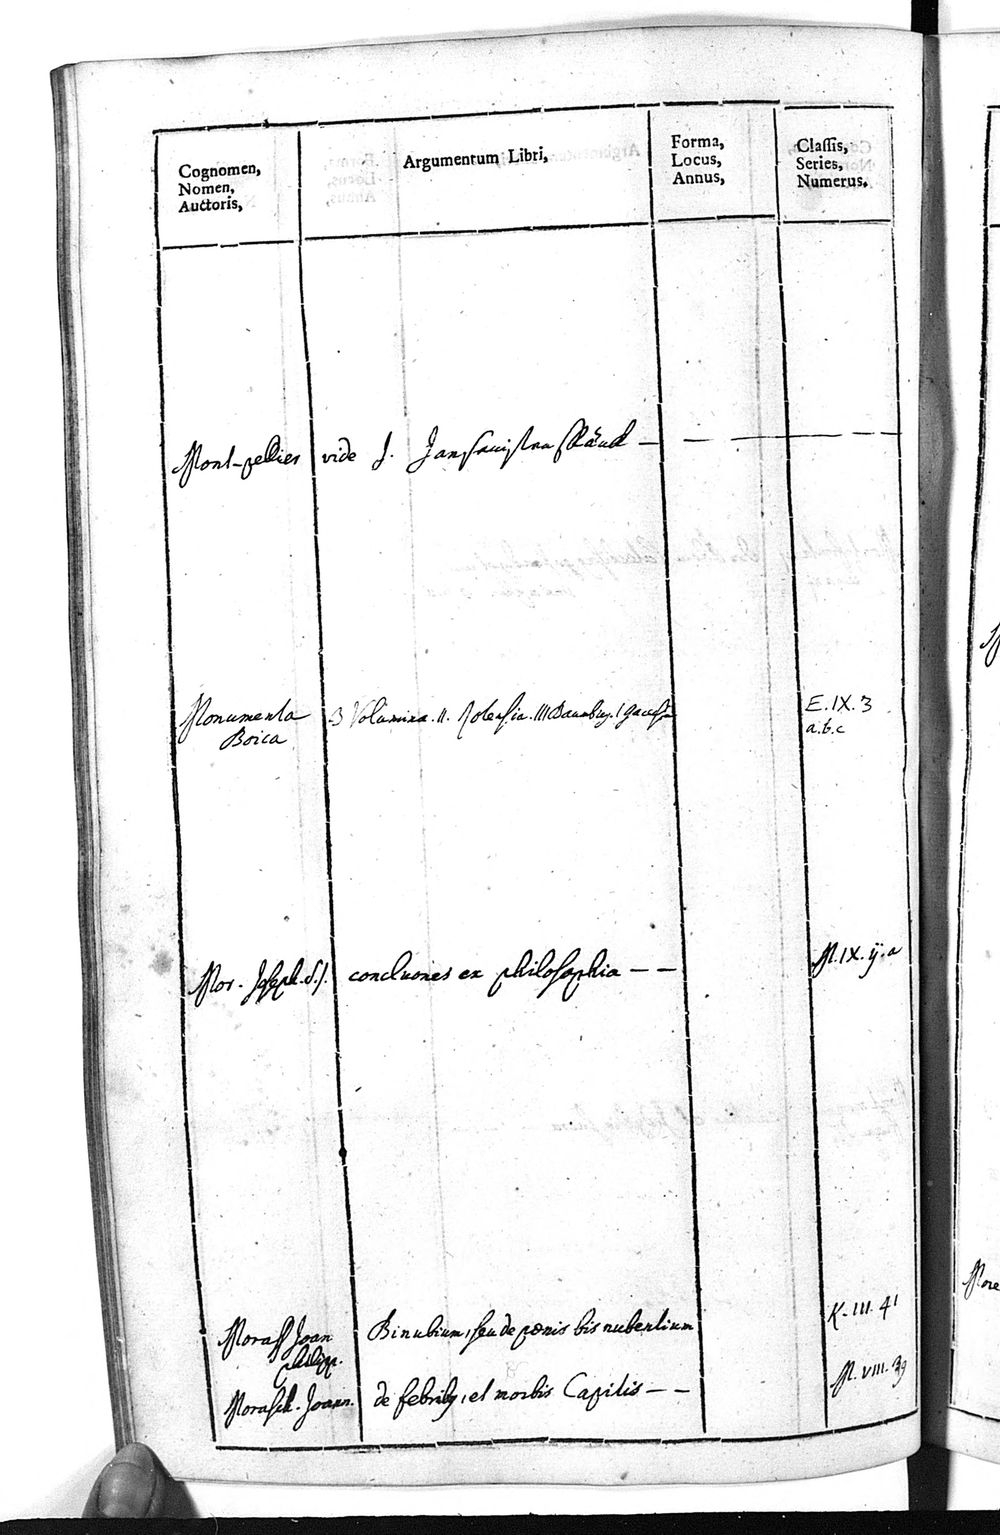 Cognomen,
Nomen,
Auctoris,
Argumentum Libri,
Forma,
Locus,
Annus,
Classis,
Series,
Numerus.
Mont-pellier vide J.
Monumenta 3 Volumina. II. III I E. IX. 3
Boica a.b.c
Mor. Joseph. S.J. conclusiones ex philosophia — — N. IX. ij. a
Morass Joan Binubium, seu de poenis bis nubentium K. III. 41
philipp.
Morasch. Joann. de febriby, et morbis Capitis — — N. VIII. 39